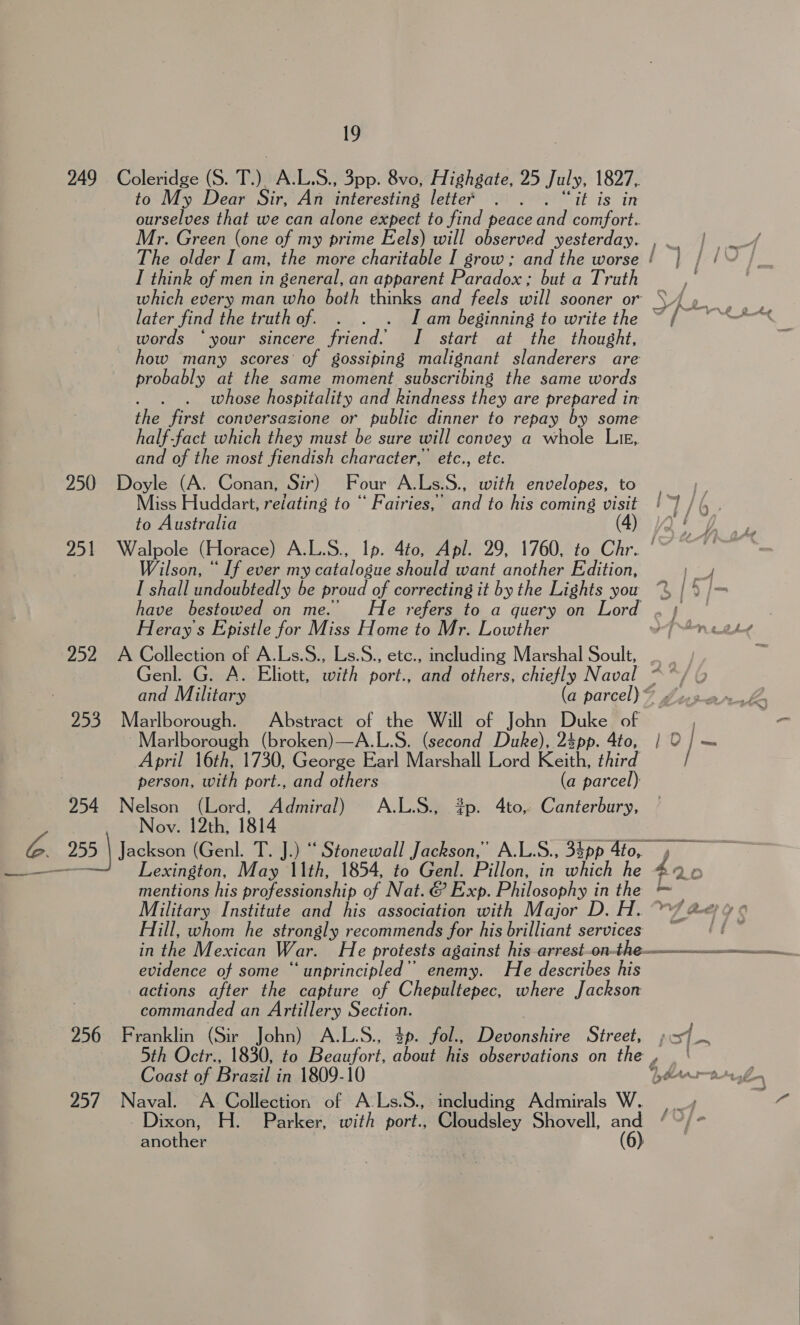 19
249 Coleridge (S. T.) A.L.S., 3pp. 8vo, Highgate, 25 July, 1827,
to My Dear Sir, An interesting letter . . . “it is in
ourselves that we can alone expect to find peace and comfort.
Mr. Green (one of my prime Eels) will observed yesterday.
The older I am, the more charitable I grow; and the worse
I think of men in general, an apparent Paradox; but a Truth
which every man who both thinks and feels will sooner or
later find the truth of. . . . I am beginning to write the
words ‘your sincere friend.’ I start at the thought,
how many scores of gossiping malignant slanderers are
probably at the same moment subscribing the same words
. . . whose hospitality and kindness they are prepared in
the first conversazione or public dinner to repay by some
half-fact which they must be sure will convey a whole LIE,
and of the most fiendish character,” etc., etc.
250 Doyle (A. Conan, Sir) Four A.Ls.S., with envelopes, to
Miss Huddart, relating to “Fairies,” and to his coming visit
to Australia (4)
251 Walpole (Horace) A.L.S., 1p. 4to, Apl. 29, 1760, to Chr.
Wilson, “If ever my catalogue should want another Edition,
I shall undoubtedly be proud of correcting it by the Lights you
have bestowed on me.” He refers to a query on Lord
Heray's Epistle for Miss Home to Mr. Lowther
252 A Collection of A.Ls.S., Ls.S., etc., including Marshal Soult,
Genl. G. A. Eliott, with port., and others, chiefly Naval
and Military (a parcel)
253 Marlborough. Abstract of the Will of John Duke of
Marlborough (broken)—A.L.S. (second Duke), 2½pp. 4to,
April 16th, 1730, George Earl Marshall Lord Keith, third
person, with port., and others (a parcel)
254 Nelson (Lord, Admiral) A.L.S., ¾p. 4to, Canterbury,
Nov. 12th, 1814
255 Jackson (Genl. T. J.) “Stonewall Jackson,” A.L.S., 3½pp 4to,
Lexington, May 11th, 1854, to Genl. Pillon, in which he
mentions his professionship of Nat. & Exp. Philosophy in the
Military Institute and his association with Major D. H.
Hill, whom he strongly recommends for his brilliant services
in the Mexican War. He protests against his arrest on the
evidence of some “unprincipled” enemy. He describes his
actions after the capture of Chepultepec, where Jackson
commanded an Artillery Section.
256 Franklin (Sir John) A.L.S., ½p. fol., Devonshire Street,
5th Octr., 1830, to Beaufort, about his observations on the
Coast of Brazil in 1809-10
257 Naval. A Collection of A.Ls.S., including Admirals W.
Dixon, H. Parker, with port., Cloudsley Shovell, and
another (6)